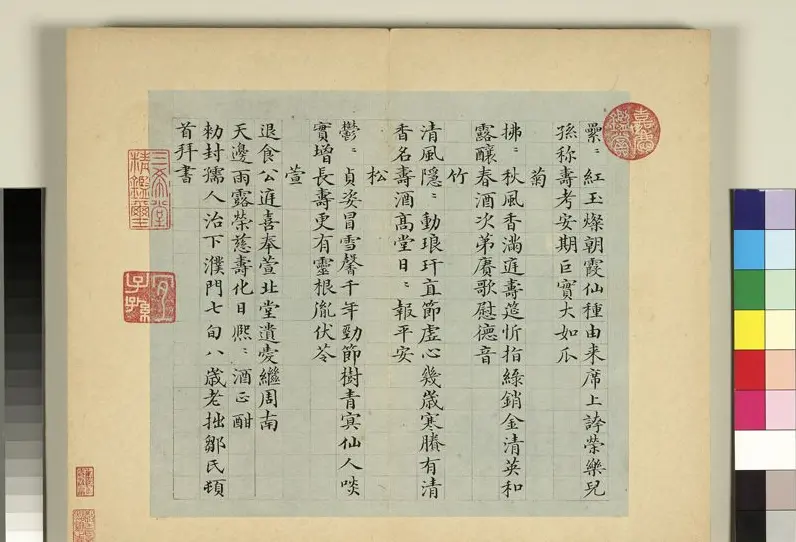 纍〻紅玉燦朝霞仙種由来席上誇榮樂兒
孫称壽考安期巨實大如瓜
菊
拂〻秋風香滿庭壽筵忻指綠銷金清英和
露釀春酒次第賡歌慰德音
竹
清風隱〻動琅玕直節虛心幾歲寒賸有清
香名壽酒高堂日〻報平安
松
鬱〻貞姿冒雪馨千年勁節樹青冥仙人啖
實增長壽更有靈根胤伏苓
萱
退食公庭喜奉萱北堂遺愛繼周南
天邊雨露榮慈壽化日熙〻酒正酣
勅封孺人治下濮門七旬八歲老拙鄒氏頓
首拜書
嘉慶
鑑賞
三希堂
精鑑璽
宜
子孫